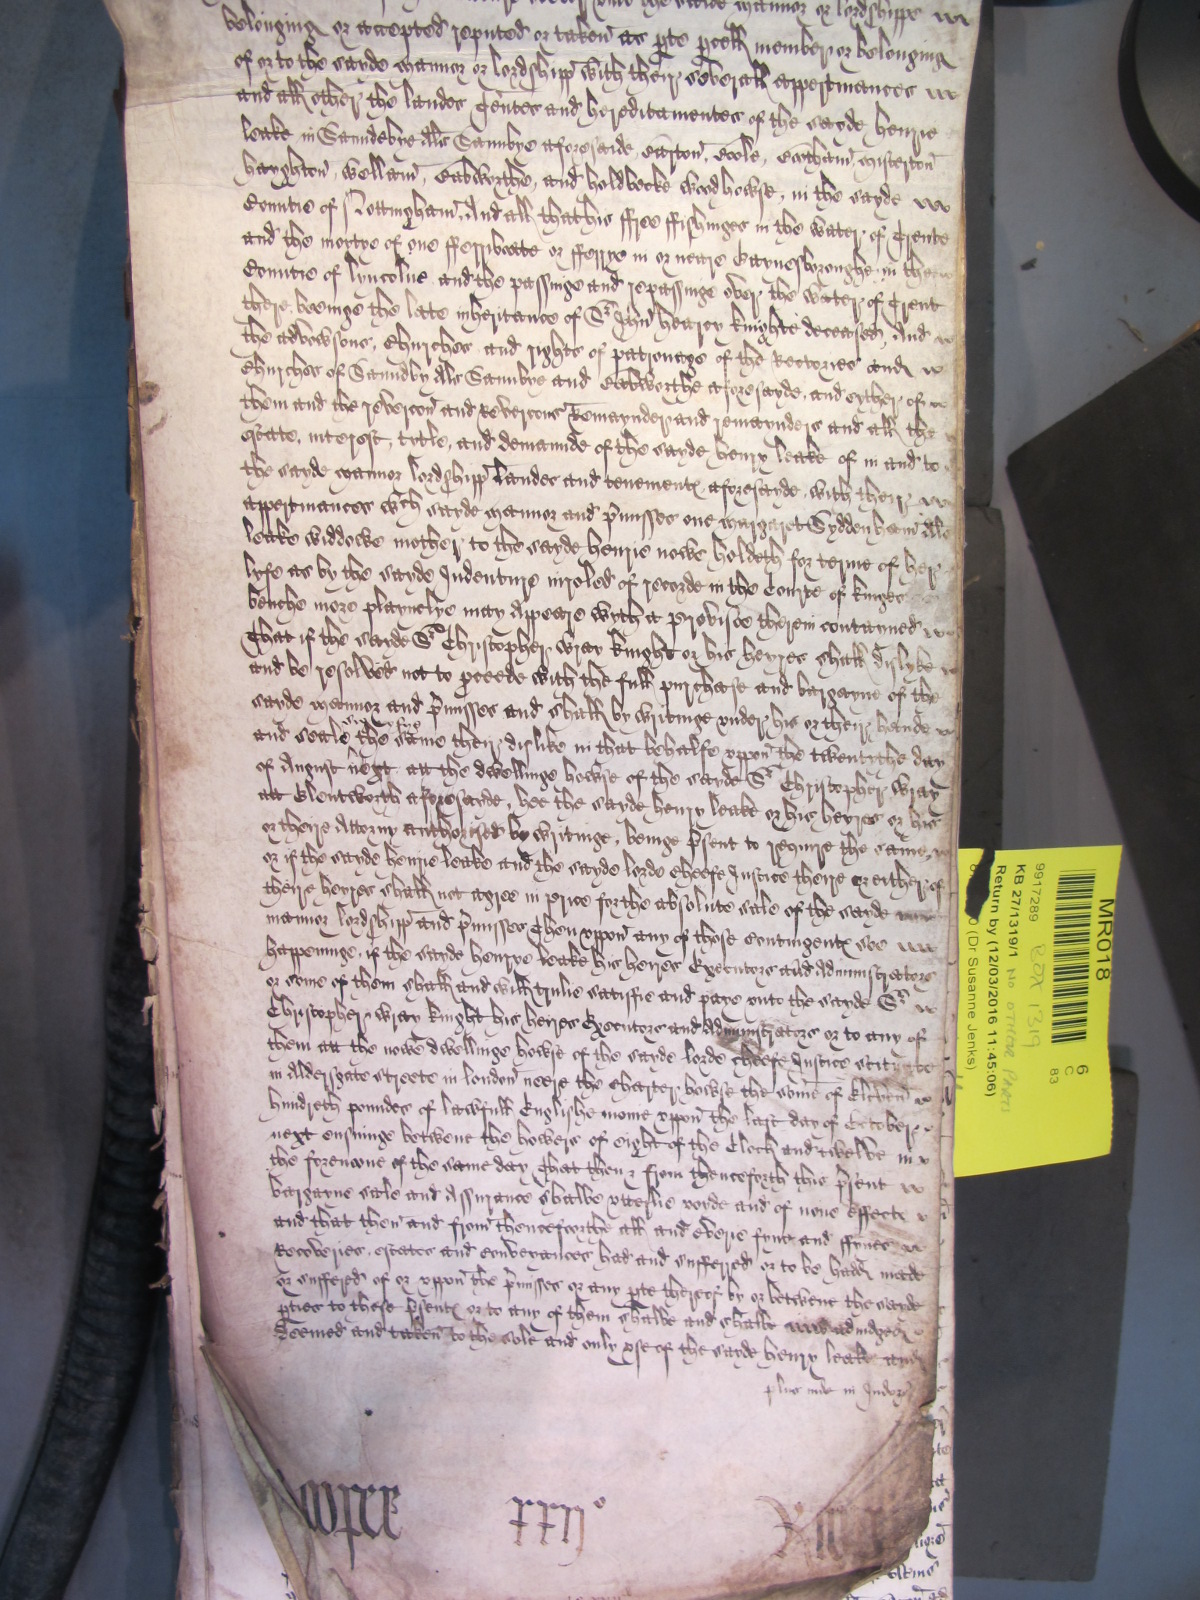 belonging or accepted reputed or taken as pte pcell member or belonging
of or to the sayde mannor or lordshipp with their severall appertinances
and all other the landes tentes and hereditamentes of the sayde Henrie
leake in Saundebye Als Saunbye aforesaide Miston
haughton, wellam, Eabworthe, and holdbecke woodhowse, in the sayde
Countie of Nottingham, And all that his ffree ffishinges in the water of Trente
and the moytye of one fferriboate or fferrye in or neare Gaynesboroughe in the
Countie of lyncolne and the passinge and repassinge over the water of Trent
there beeinge the late inheritance of Sr John hearcy knighte deceased, And
the advowsons, Churches and rights of patronages of the Rectories and
Churches of Saundby Als Saunbye and Eabworthe aforesayde, and eyther of
them and the revercon and Revercons Remaynder and remaynders and all the
estate, interest, tytle, and demaunde of the sayde henry leake of in and to
the sayde mannor lordshipp landes and tenementes aforesayde with their
appertinances wch sayde mannor and pmisses one margaret Syddenham Als
leake widdowe mother to the sayde henrie nowe holdeth for terme of her
lyfe as by the sayde Indenture inroled of recorde in the Courte of kinges
benche more playnelye may Appeare wyth a provisoe therein contayned
That if the sayde Sr Christopher wray knight or his heyres shall dislyke
and be resolved not to pceede with the full purchase and bargayne of the
sayde mannor and pmisses and shall by writinge under his or their hande
and seale signifye the same their dislike in that behalfe uppon the twentithe day
of August next att the dwellinge howse of the sayde Sr Christopher wray
att Glentworth aforesayde, hee the sayde henry leake or his heyres or his
or theire Attorny authorised by writinge, beinge psent to require the same,
or if the sayde henrie leake and the sayde lorde cheefe Justice theire or either of
theire heyres shall not agree in price for the absolute sale of the sayde
mannor lordshipp and pmisses Then uppon any of those contingentes soe
happeninge, if the sayde henrye leake his heyres Executors and Administrators
or some of them shall and will trulie satisfie and paye unto the sayde Sr
Christopher wray knight his heyres Executors and Administrators or to any of
them att the nowe dwellinge howse of the sayde lorde cheefe Justice scituate
in Aldersgate streete in london neere the Charter howse the some of Eleven
hundreth poundes of lawfull Englishe monie uppon the last day of October
next ensuinge betwene the howers of eight of the Clock and twelve in
the forenone of the same day That then & from thenceforth this psent
bargayne sale and Assurance shalbe utterlie voyde and of none effecte
and that then and from thenceforthe all and everie fyne and ffynes
Recoveries, estates and conveyances had and suffered or to be hadd made
or suffered of or uppon the pmisses or any pte thereof by or betwene the sayde
pties to these psentes or to any of them shalbe and shalbe adiudged
deemed and taken to the sole and only use of the sayde henry leake and
plus inde in Indors
MR018
6
C
83
9917289 Box 1319
KB 27/1319/1 No other parts
Return by (12/03/2016 11:45:06)
(Dr Susanne Jenks)